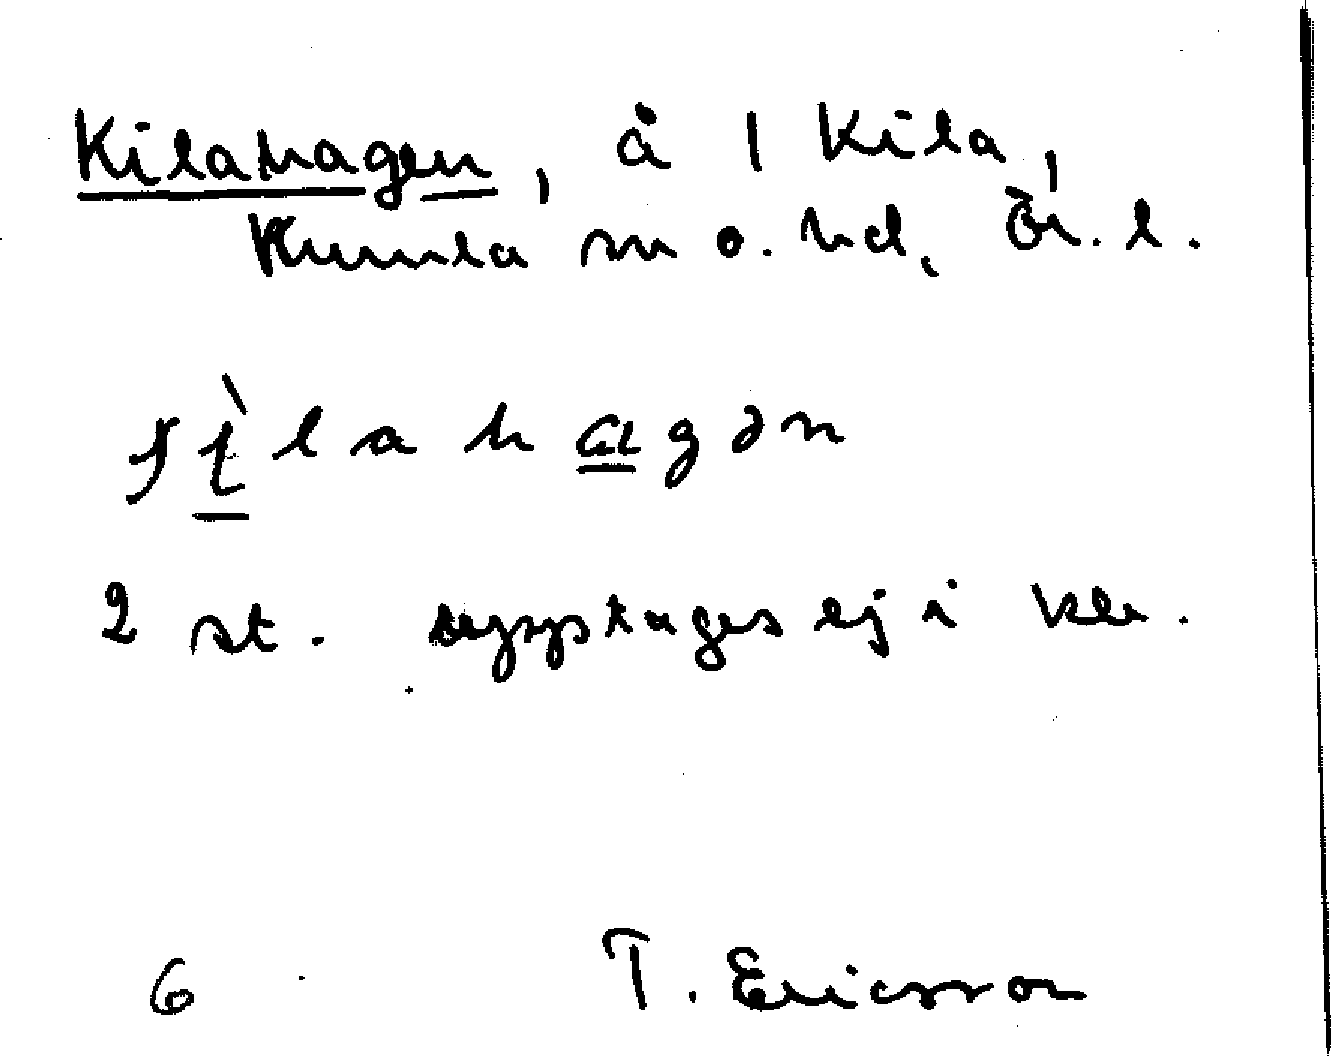 Kilahagen, å 1 Kila,
Kumla sn o. hd, Ör. l.
ʃì̱laha̱gən
2 st. upptages ej i kle.
6 T. Ericsson